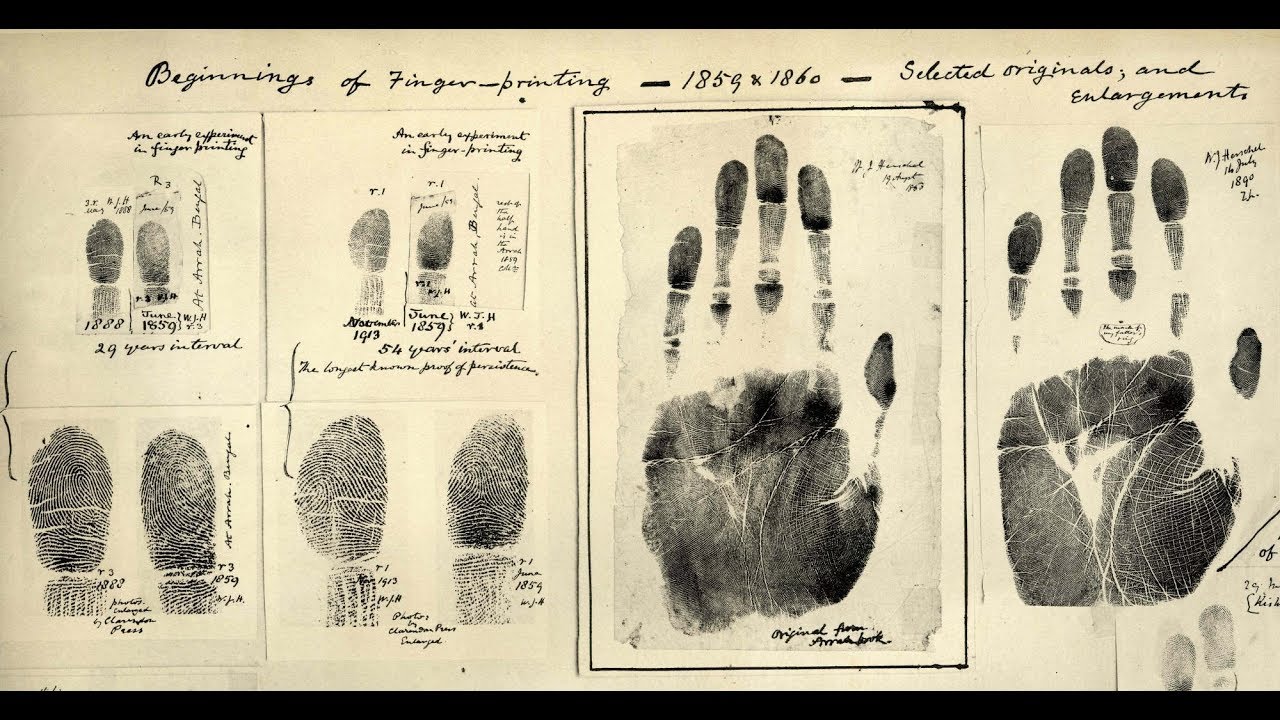 Beginnings of Finger-printing — 1859 & 1860 — Selected originals; and
Enlargements
An early experiment
in finger printing
R 3
W.J.H
1888
June/59
At Arrah, Bengal
r.3 W.J.H
1888
June
1859
W.J.H
r.3
29 years interval
An early experiment
in finger-printing
r.1
r.1
June/59
rest of
the
half
hand
is in
the
Arrah
1859
At Arrah, Bengal
r.1
W.J.H
November
1913
June
1859
W.J.H
r.3
54 years' interval
The longest known proof of persistence.
r3
1888
Photos
Enlarged
by Clarendon
Press
At Arrah Bengal
r3
1859
W.J.H.
r.1
1913
W.J.H
Photos
by
Clarendon Press
Enlarged
r.1
June
1859
W.J.H
W. J Herschel
Original from
Arrah book.
W.J Herschel
14 July
1890
The mark of
my father's
ring
of